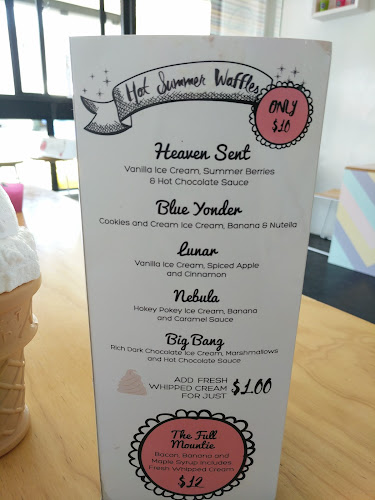 Hot Summer Waffles
ONLY
$10
Heaven Sent
Vanilla Ice Cream, Summer Berries
& Hot Chocolate Sauce
Blue Yonder
Cookies and Cream Ice Cream, Banana & Nutella
Lunar
Vanilla Ice Cream, Spiced Apple
and Cinnamon
Nebula
Hokey Pokey Ice Cream, Banana
and Caramel Sauce
Big Bang
Rich Dark Chocolate Ice Cream, Marshmallows
and Hot Chocolate Sauce
ADD FRESH
WHIPPED CREAM
FOR JUST
$1.00
The Full
Mountie
Bacon, Banana and
Maple Syrup Includes
Fresh Whipped Cream
$12